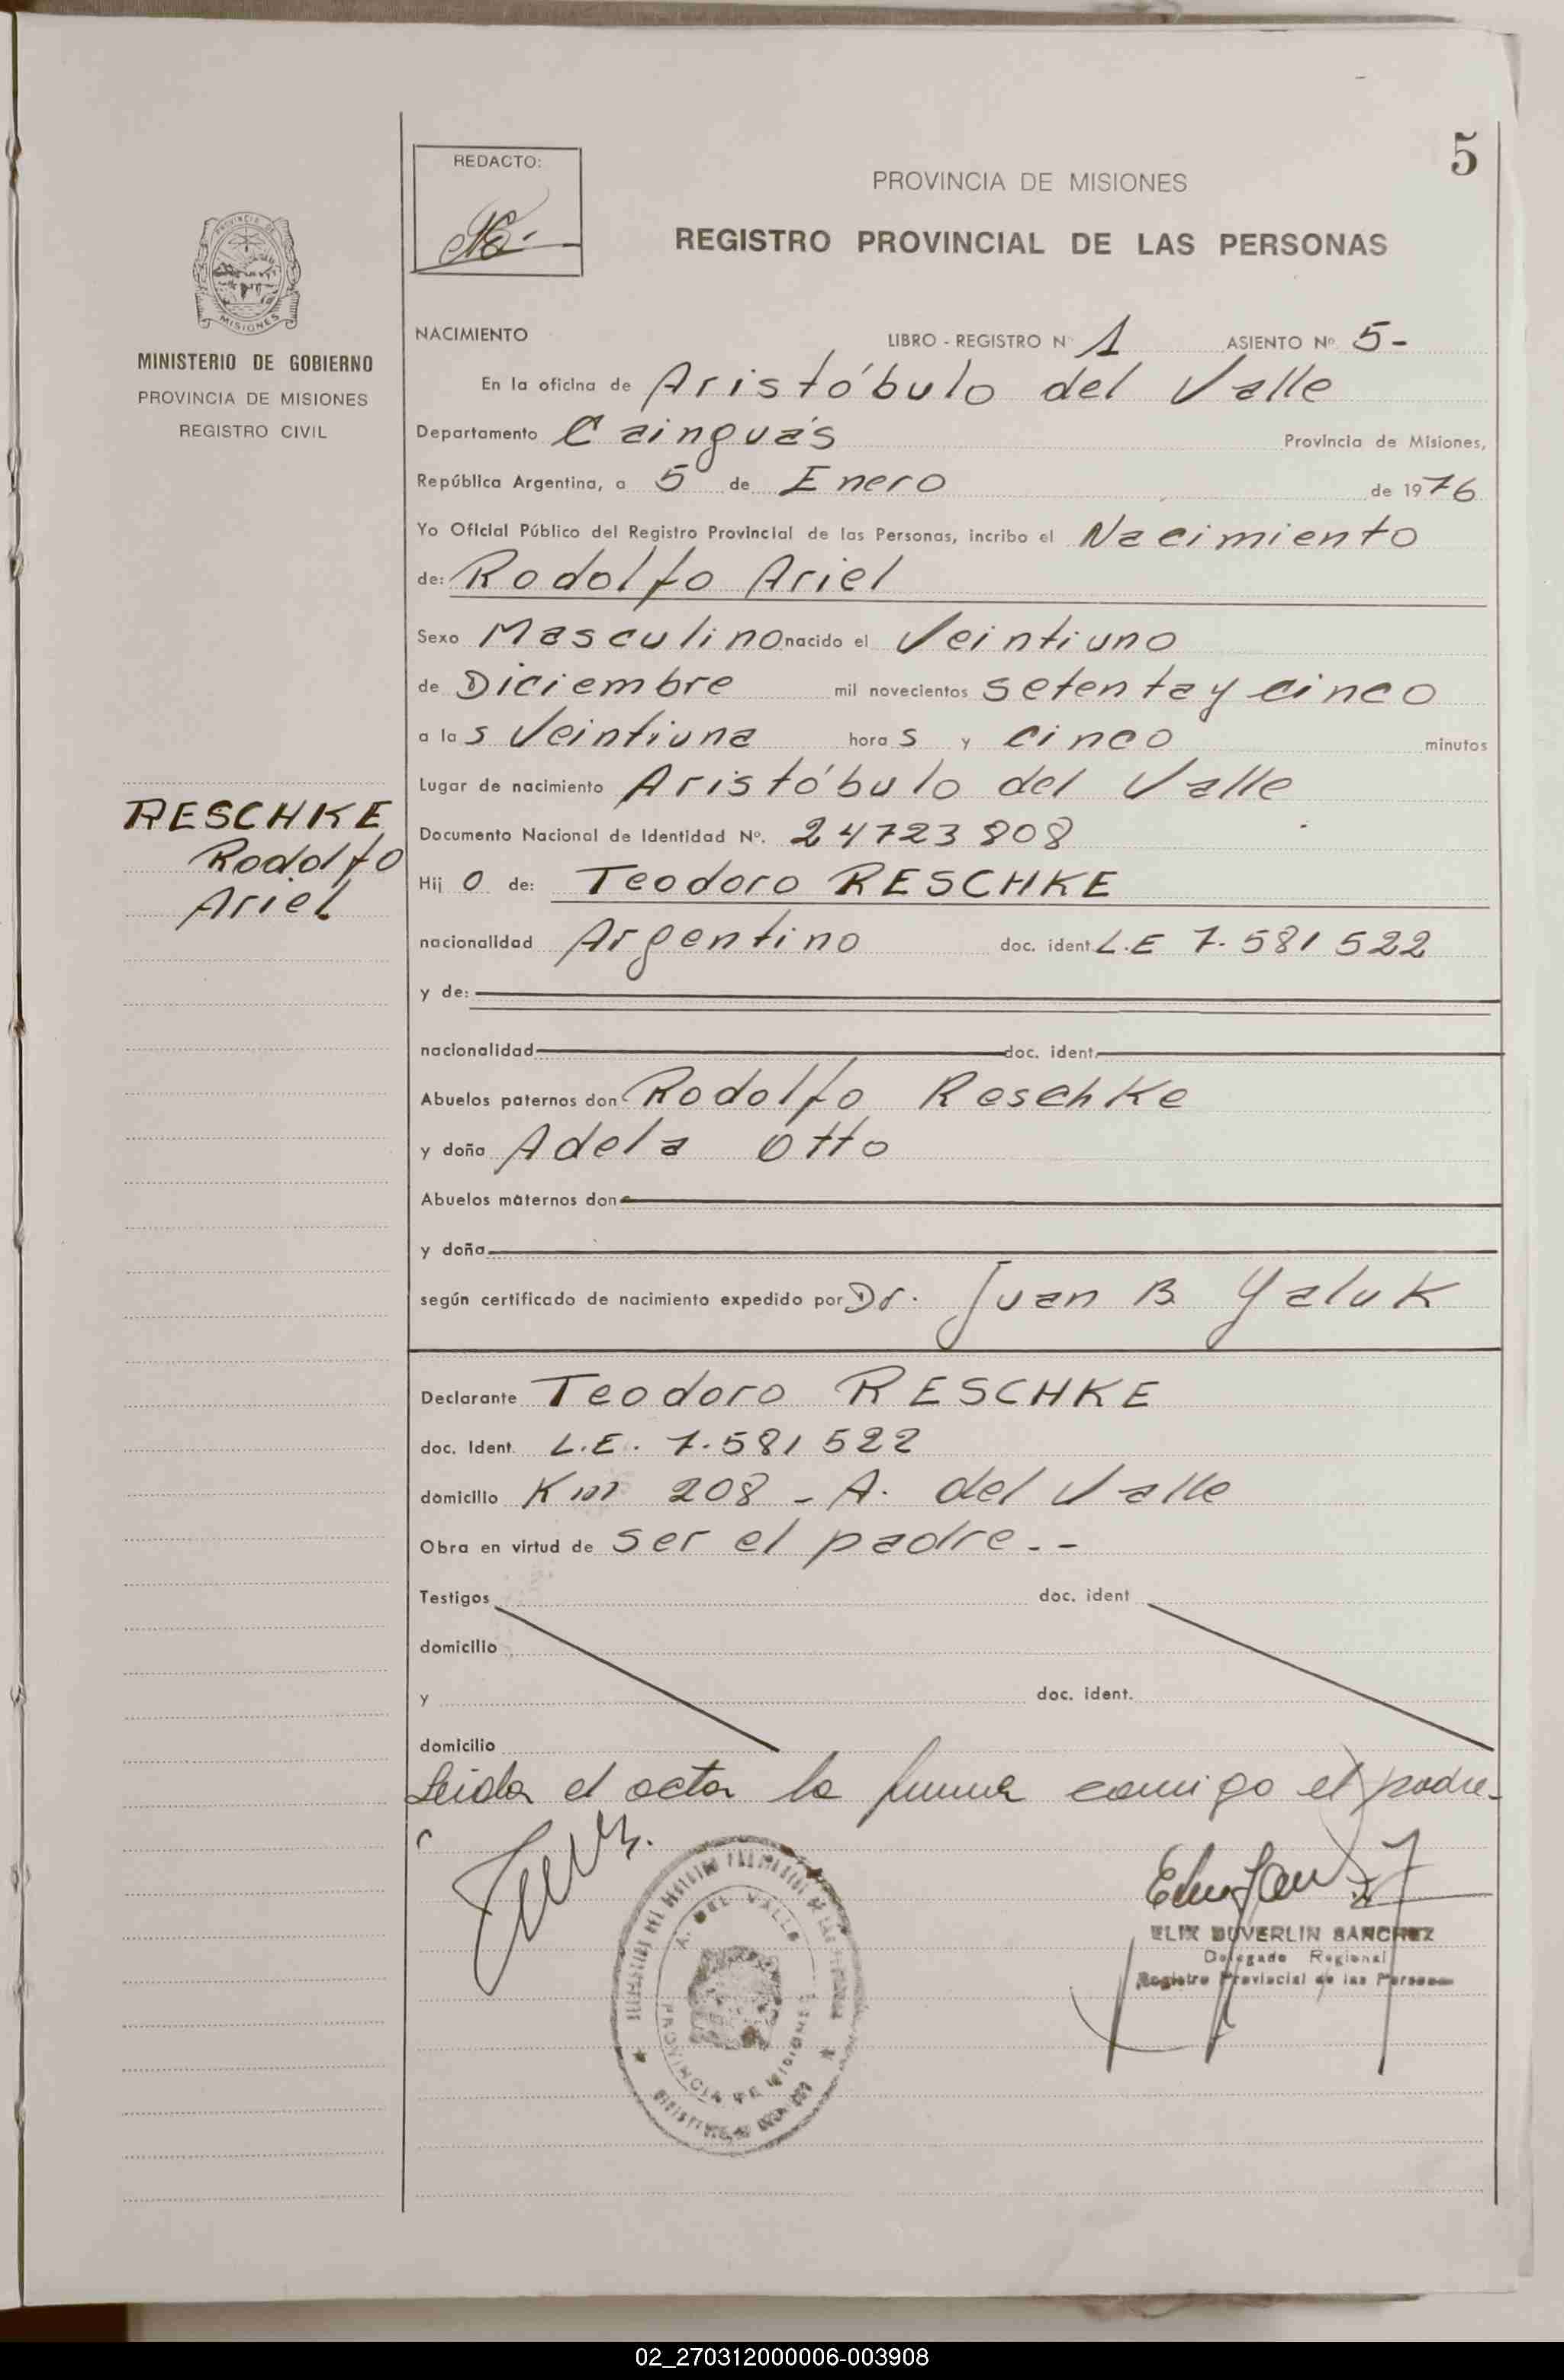 5
REDACTO:
PROVINCIA DE MISIONES
REGISTRO PROVINCIAL DE LAS PERSONAS
PROVINCIA DE
MISIONES
MINISTERIO DE GOBIERNO
PROVINCIA DE MISIONES
REGISTRO CIVIL
RESCHKE
Rodolfo
Ariel
NACIMIENTO LIBRO - REGISTRO Nº 1 ASIENTO Nº 5-
En la oficina de Aristóbulo del Valle
Departamento Cainguás Provincia de Misiones,
República Argentina, a 5 de Enero de 1976
Yo Oficial Público del Registro Provincial de las Personas, incribo el Nacimiento
de: Rodolfo Ariel
Sexo Masculino nacido el Veintiuno
de Diciembre mil novecientos setenta y cinco
a las Veintiuna horas y cinco minutos
Lugar de nacimiento Aristóbulo del Valle
Documento Nacional de Identidad Nº. 24723808
Hijo de: Teodoro RESCHKE
nacionalidad Argentino doc. ident. L.E 7.581522
y de:
nacionalidad doc. ident.
Abuelos paternos don Rodolfo Reschke
y doña Adela Otto
Abuelos maternos don
y doña
según certificado de nacimiento expedido por Dr. Juan B. Yaluk
Declarante Teodoro RESCHKE
doc. Ident. L.E. 7.581522
domicilio Km 208 - A. del Valle
Obra en virtud de ser el padre.--
Testigos doc. ident
domicilio
y doc. ident.
domicilio
Leida el acta la firma comigo el padre-
A. DEL VALLE
PROVINCIA DE MISIONES
ELIX DUVERLIN SANCHEZ
Delegado Regional
Registro Provincial de las Personas
02_270312000006-003908